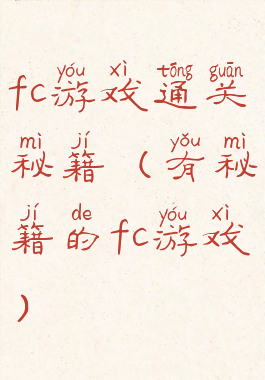 yóu xì tōng guān
fc游戏通关
mì jí yǒu mì
秘籍(有秘
jí de yóu xì
籍的fc游戏
)